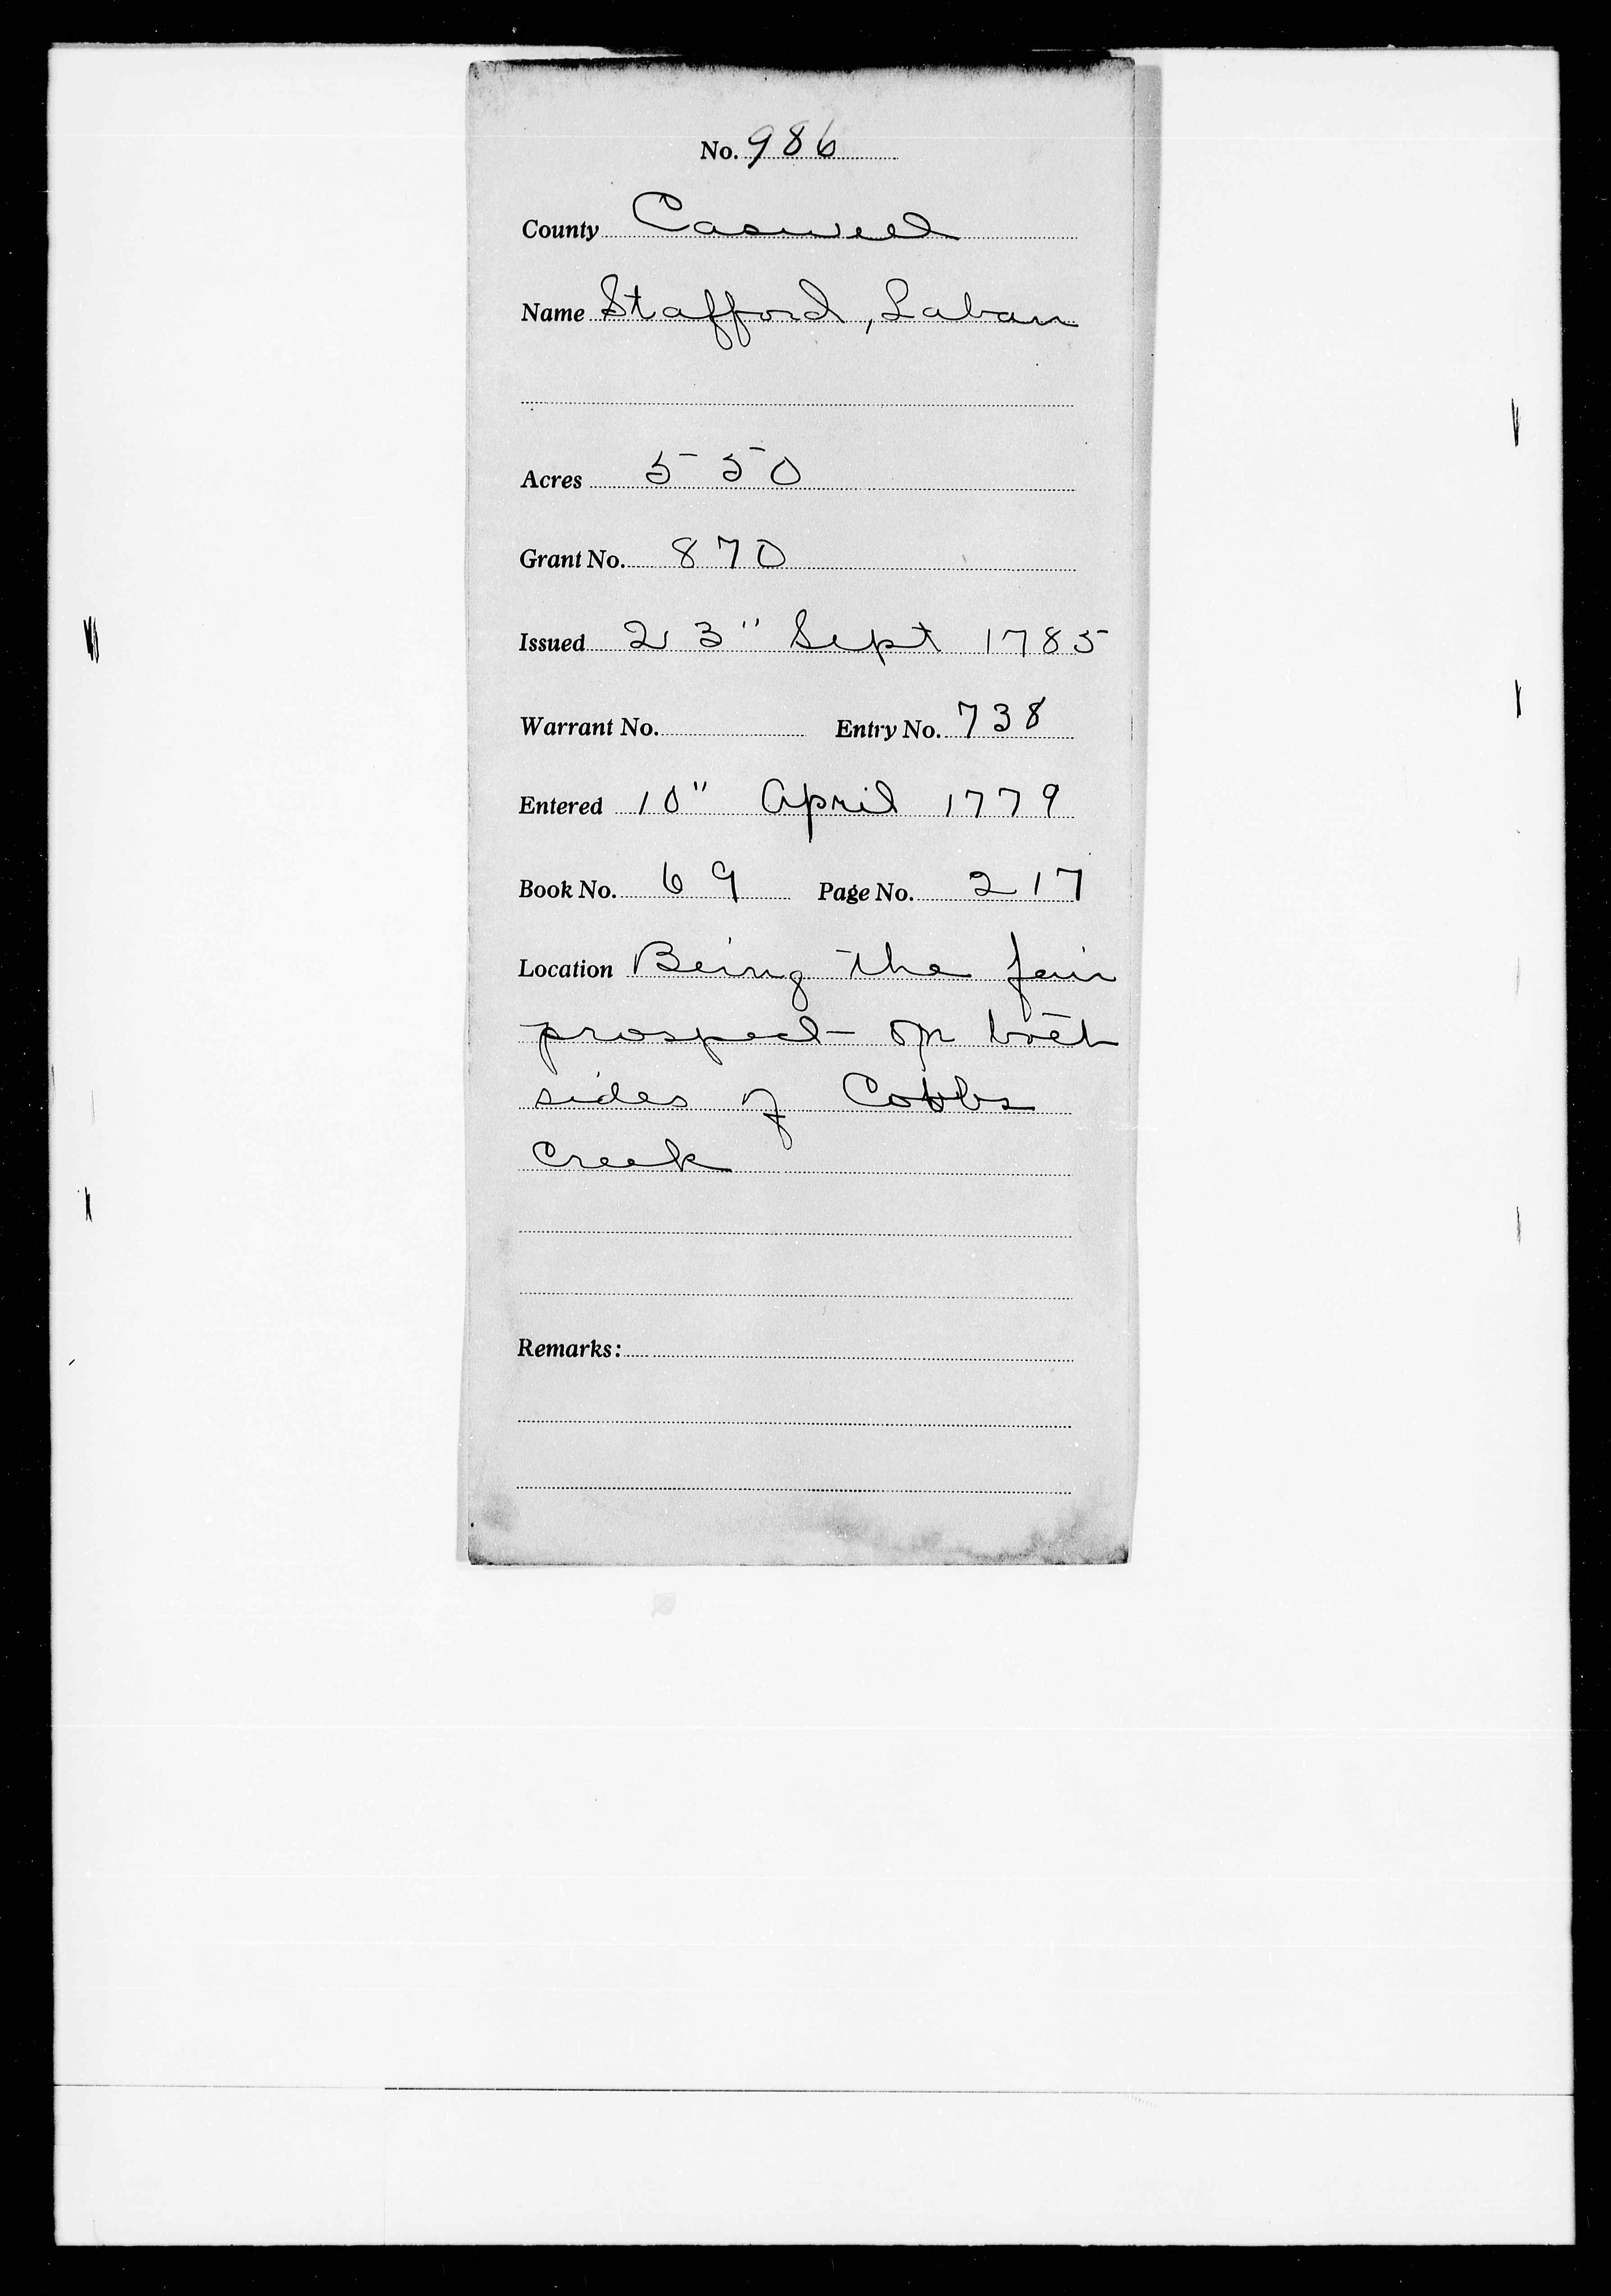 No. 986
County Caswell
Name Stafford, Laban
Acres 550
Grant No. 870
Issued 23" Sept 1785
Warrant No. Entry No. 738
Entered 10" April 1779
Book No. 69 Page No. 217
Location Being the fair
prospect on both
sides of Cobbs
Creek
Remarks: